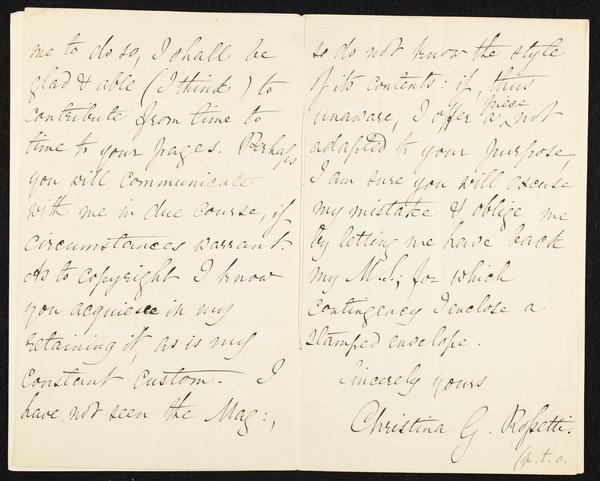 me to do so, I shall be
glad & able (I think) to
contribute from time to
time to your pages. Perhaps
you will communicate
with me in due course, if
circumstances warrant.
As to copyright I know
you acquiesce in my
retaining it, as is my
constant custom. I
have not seen the Mag:,
so do not know the style
of its contents: if, thus
unaware, I offer a piece not
adapted to your purpose,
I am sure you will excuse
my mistake & oblige me
by letting me have back
my M.S.; for which
contingency I enclose a
stamped envelope.
Sincerely yours
Christina G. Rossetti.
(p.t.o.